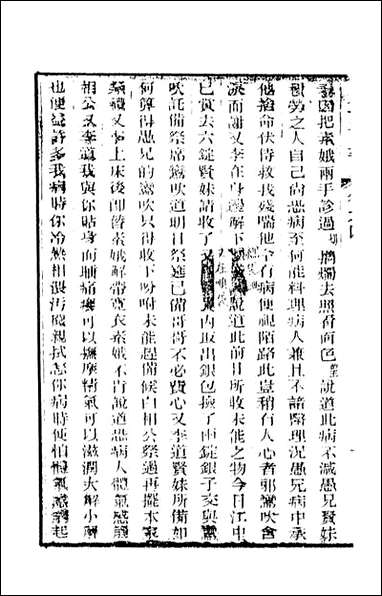 因把素娥兩手診過 擕燭去照看面色 說道此病不減愚兄賢妹
積勞之人自己尙恐病至何能料理病人兼且不諳醫理況愚兄病中承
他捨命伏侍救我殘喘他今有病便視陌路此豈稍有人心者鄭鸞吹會
淚而謝又李在身邊解下 說道此前日所收未能之物今日江中
已買去六錠賢妹請收了又 內取出銀包撿了兩錠銀子交與鸞
吹託備祭席鸞吹道明日祭筵已備哥哥不必費心又李道賢妹所備如
何算得愚兄的鸞吹只得收下吩咐未能趕備候白相公祭過再擺本家
祭禮又李上床後卽替素娥解帶寬衣素娥不肯說道恐病人體氣感觸
相公又李道我與你貼身而睡痛癢可以撫摩精氣可以滋潤大解小解
也便益許多我病時你冷熱相偎汚穢親拭怎你病時便怕體氣感觸起